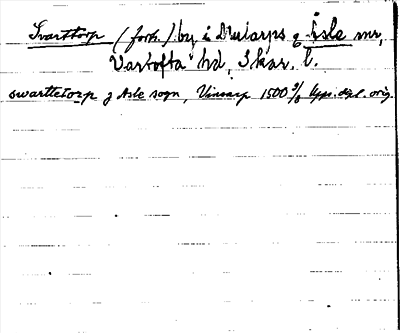 Svarttorp (forsv.) by i Dlutarps o. Åsle snr,
Vartofta hd, Skar. l.
swarttetorp j Asle sogn, Vinsarp 1500 9/8 Upps. dgl. orig.